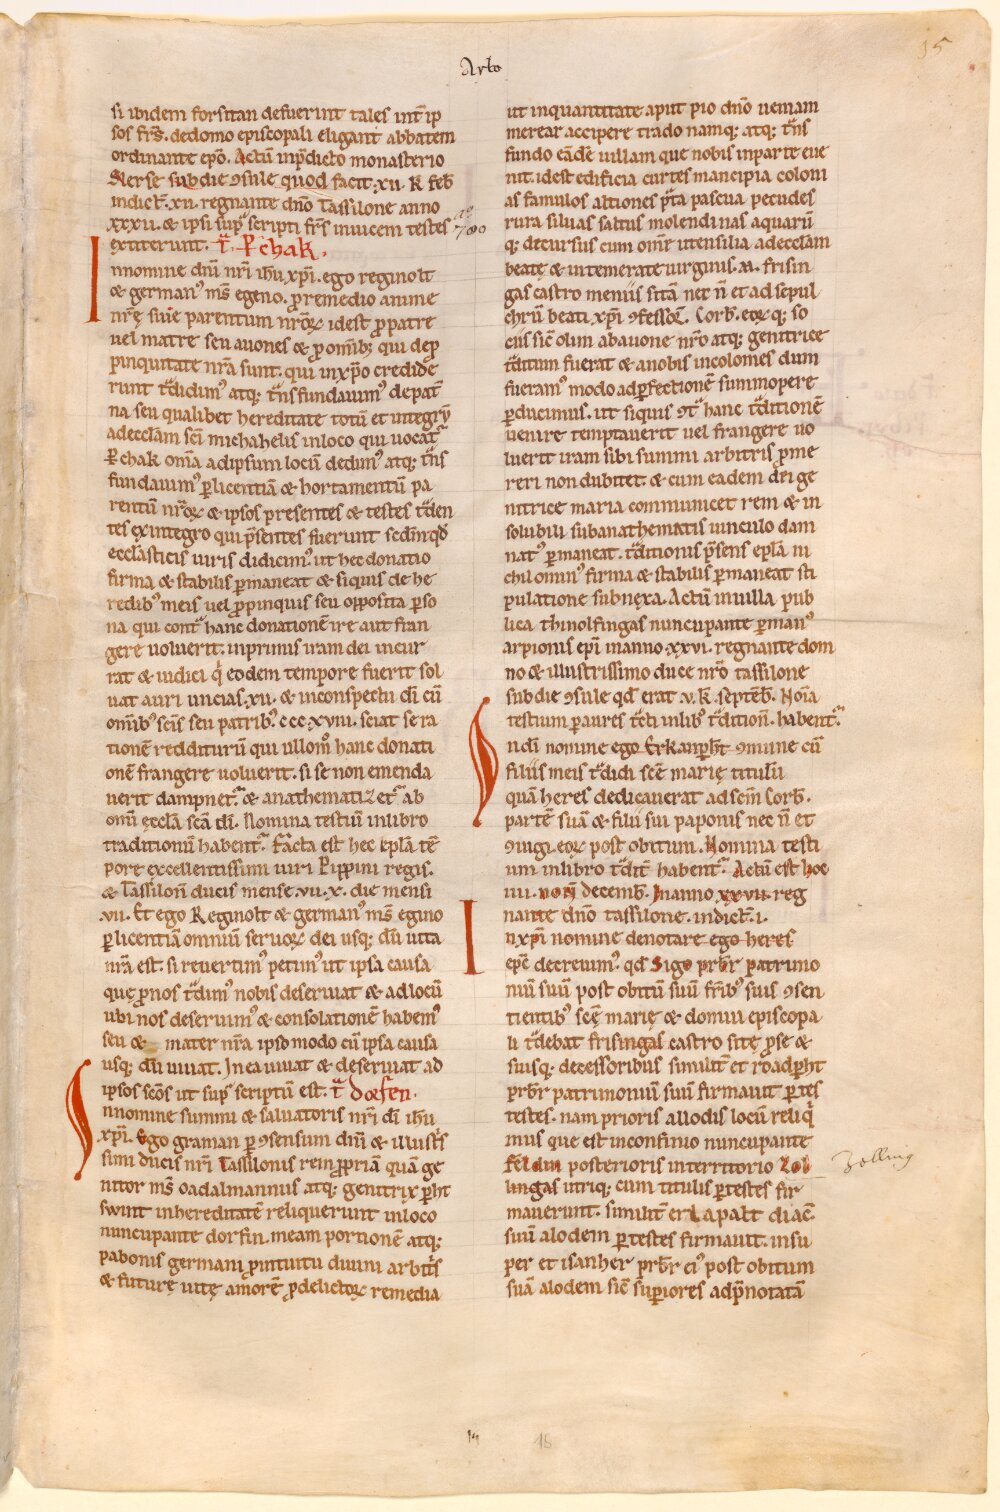 15
Arbo
si ibidem forsitan defuerint tales int̄ ip
sos fr̄s. dedomo episcopali eligant abbatem
ordinante ep̄o. Actū inp̄dicto monasterio
Slerse subdie ꝯsule quod facit .xii. k feb̄
indict̄. xii. regnante dn̄o Tassilone anno
xxxii. & ipsi sup̲ scripti fr̄s inuicem testes
extiterunt. t̄. Pͤchak.
Innomine dn̄i nr̄i ih̄u xp̄i. ego reginolt
& german᾽ m̄s egeno. ꝓremedio anime
nr̄ę siue parentum nr̄oꝝ idest ꝓpatre
uel matre seu auones & ꝓ omīb; qui de ꝓ
pinquitate nr̄a sunt. qui inxp̄o credide
runt tᷓdidim᾽ atq; tᷓnsfundauim᾽ depat̄
na seu qualibet hereditate totū et integrū
adecclam sc̄i michahelis inloco qui uocat᷑
Pͤchak om̄a adipsum locū dedim᾽ atq; tᷓns
fundauim᾽ ꝑlicentiā & hortamentū pa
rentū nr̄oꝝ & ipsos presentes & testes tᷓden
tes exintegro qui p̄sentes fuerunt scdm̄ qđ
ecclasticis uiris didicim᾽. ut hec donatio
firma & stabilis ꝑmaneat & siquis de he
redib᾽ meis uel ꝓpinquis seu opposita ꝑso
na qui contᷓ hanc donationē ire aut fran
gere uoluerit. inprimis iram dei incur
rat & iudici q̇ eodem tempore fuerit sol
uat auri uncias .xii. & inconspectu dī cū
omīb᾽ sc̄is seu patrib᾽. ccc.xviii. sciat se ra
tionē redditurū qui ullom̊ hanc donati
onē frangere uoluerit. si se non emenda
uerit dampnet᷑. & anathematizet᷑ ab
omī ęccla̅ sc̄a dī. Nomina testiū inlibro
traditionū habent᷑. Facta est hec epl̄a tē
pore excellentissimi uiri Pippini regis.
& Tassiloni ducis mense .vii. x. die mensi
.vii. Et ego Reginolt & german᾽ m̄s egino
ꝑlicentiā omniū seruoꝝ dei usq; dū uita
nr̄a est. si reuertim᾽ petim᾽ ut ipsa causa
quę ꝓnos tᷓdim᾽ nobis deseruiat & ad locū
ubi nos deseruim᾽ & consolationē habem᾽
seu & mater nr̄a ipso modo cū ipsa causa
usq; dū uiuat. In ea uiuat & deseruiat ad
ipsos sc̄os ut sup̲ scriptū est. t̄ dorfen.
Innomine summi & saluatoris nr̄i dī ih̄u
xp̄i. Ego graman ꝑ ꝯsensum dn̄i & illustis
simi ducis nr̄i Tassilonis rem ꝓpriā quā ge
nitor m̄s oadalmannus atq; genitrix ꝑht
swint inhereditatē reliquerunt inloco
nuncupante dorfin. meam portionē atq;
pabonis germani ꝓintuitu diuini arbitis
& futurę uitę amorē ꝓdelictoꝝ remedia
ut inquantitate aput pio dn̄o ueniam
merear accipere trado namq; atq; tᷓns
fundo eādē uillam que nobis inparte eue
nit. idest edificia curtes mancipia coloni
as famulos altiones p̄ta pascua pecudes
rura siluas saltus molendinas aquarū
q; decursus cum omīe utensilia adecclam
beatę & intemerate uirginis .m. frisin
gas castro meniis sitā nec n̄ et ad sepul
chrū beati xp̄i ꝯfessor̄. Corb. eoꝝ q; so
ciis sic̄ olim abauone nr̄o atq; genitrice
tᷓditum fuerat & anobis incolomes dum
fueram᾽ modo adꝑfectionē summopere
ꝑducimus. ut siquis ꝯtᷓ hanc tᷓditionē
uenire temptauerit uel frangere uo
luerit iram sibi summi arbitris ꝓme
reri non dubitet. & cum eadem dei ge
nitrice maria communicet rem & in
solubili subanathematis uinculo dam
nat᾽ ꝑmaneat. tᷓditionis p̄sens epl̄a ni
chilomin᾽ firma & stabilis ꝑmaneat sti
pulatione subnexa. Actū inuilla pub
lica thinolfingas nuncupante ꝑman᾽
arpionis ep̄i inanno .xxvi. regnante dom
no & illustrissimo duce nr̄o tassilone
subdie ꝯsule qđ erat .v. k. septēb. Noīa
testium ꝑaures tᷓcti inlib᾽ tᷓdition̄. habent᷑.
Indī nomine ego Erkanpht ꝯmune cū
filiis meis tᷓdidi sc̄e marię titulū
quā heres dedicauerat ad sc̄m Corb.
partē suā & filii sui paponis nec n̄ et
ꝯiugi. eoꝝ post obitum. Nomina testi
um inlibro tᷓdit̄ habent᷑. Actū est hoc
iiii. non̄ decemb. Inanno xxvii. reg
nante dn̄o tassilone. indict̄. i.
Inxp̄i nomine denotare ego heres
ep̄c decreuim᾽. qđ Sigo prb̄r patrimo
niū suū post obitū suū fr̄ib᾽ suis ꝯsen
tientib᾽ sc̄ę marię & domui episcopa
li tᷓdebat frisingas castro sitę ꝓse &
suisq; decessoribus similit̄ et roadꝑht
prb̄r patrimoniū suū firmauit ꝑtes
testes. nam prioris allodis locū reliq̇
mus que est inconfinio nuncupante
feldin posterioris interritorio Zol
lingas utriq; cum titulis ꝑtestes fir
mauerunt. similit̄ erlapalt diac̄.
suū alodem ꝑtestes firmauit. insu
per et isanher prb̄r ci᾽ post obitum
suā alodem sic̄ suꝑiores adp̄notatā
Zolling
18